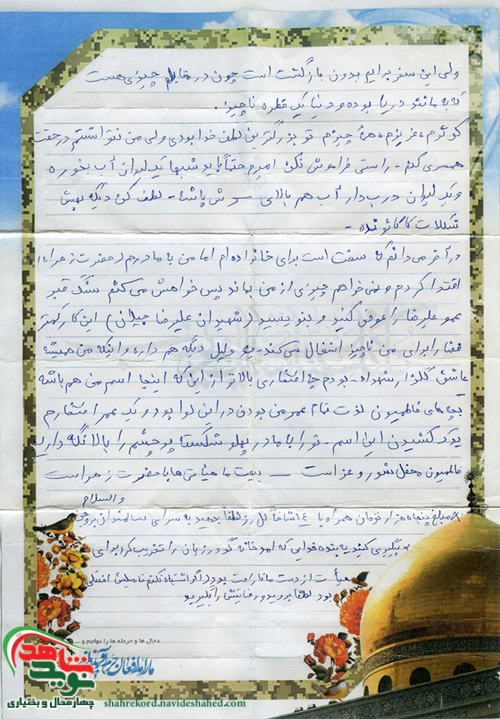 ولی این سفر برایم بدون بازگشت است چون در مقابلم چیزی هست
که به مانند دریا بوده و دنیا یک قطره ناچیز.
کوثرم، عزیزم، همۀ چیزم تو بزرگترین لطف خدا بودی ولی من نتوانستم در حقت
همسری کنم - راستی فراموش نکن امیرم حتماً باید شبها یک لیوان آب بخوره
و یک لیوان درب دار آب هم بالای سرش باشه - لطف کن دیگه بهش
شکلات کاکائو نده -
در آخر می دانم که سخت است برای خانواده ام اما من با مادرم (حضرت زهراء)
اقتدا کردم و نمی خواهم چیزی از من بماند پس خواهش می کنم سنگ قبر
عمو علیرضا را عوض کنید و بنویسید (شهیدان علیرضا جیلان) این کار کمتر
فضا را برای من ناچیز اشغال می کند - یه دلیل دیگه هم داره و اینکه من همیشه
عاشق گلزار شهداء - بودم چه افتخاری بالاتر از این که اینجا اسم من هم باشه
بچه های فاطمیون لذت تمام عمر من بودن در این لوا بود و یک عمر افتخارم
یدک کشیدن این اسم - تو را با مادر پهلو شکسته پرچمش را بالا نگه دارید
فاطمیون محفل شور و عزاست — بیعت ما با حضرت زهراست
و السلام
مبلغ پنجاه هزار تومان همراه با ١٤ شاخه گل رز لطفا بدهید به سرای سالمندان
پیگیری کنید یه بنده خدایی که امد خانه گودرزیان را تخریب کرد برای
از دست ما ناراحت بود اگر اشتباه نکنم فامیلش
بود لطفا برید و رضایتش را بگیرید
نوید شاهد
چهارمحال و بختیاری
shahrekord.navideshahed.com